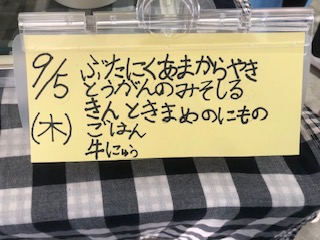 9/5
(木)
ぶたにくあまからやき
とうがんのみそしる
きんときまめのにもの
ごはん
牛にゅう